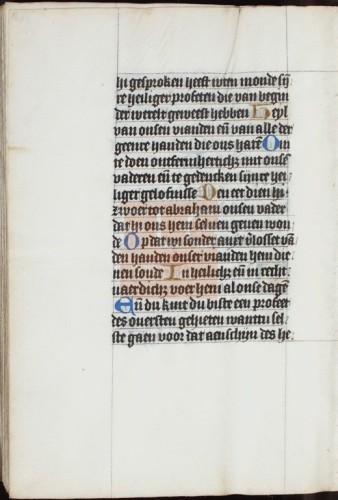 hi gesproken heeft wten monde sijn
re heiliger profeten die van begin
der werelt geweest hebben Heyl
van onsen vianden eñ van alle der
geenre handen die ons haten Om
te doen ontfermherticheit mit onsen
vaderen eñ te gedencken sijnre hei
liger gelofnisse Den eet dien hi
zwoer tot abraham onsen vader
dat hi ons hem seluen geuen wou
de Op dat wi sonder anxt v̓losset vā
den handen onser vianden hem die
nen souden In heilicheit eñ in recht
uaerdicheit voer hem al onse dagen
Eñ du kint du biste een profeet
des ouersten geheten want tu sel
ste gaen voor dat aenschijn des he